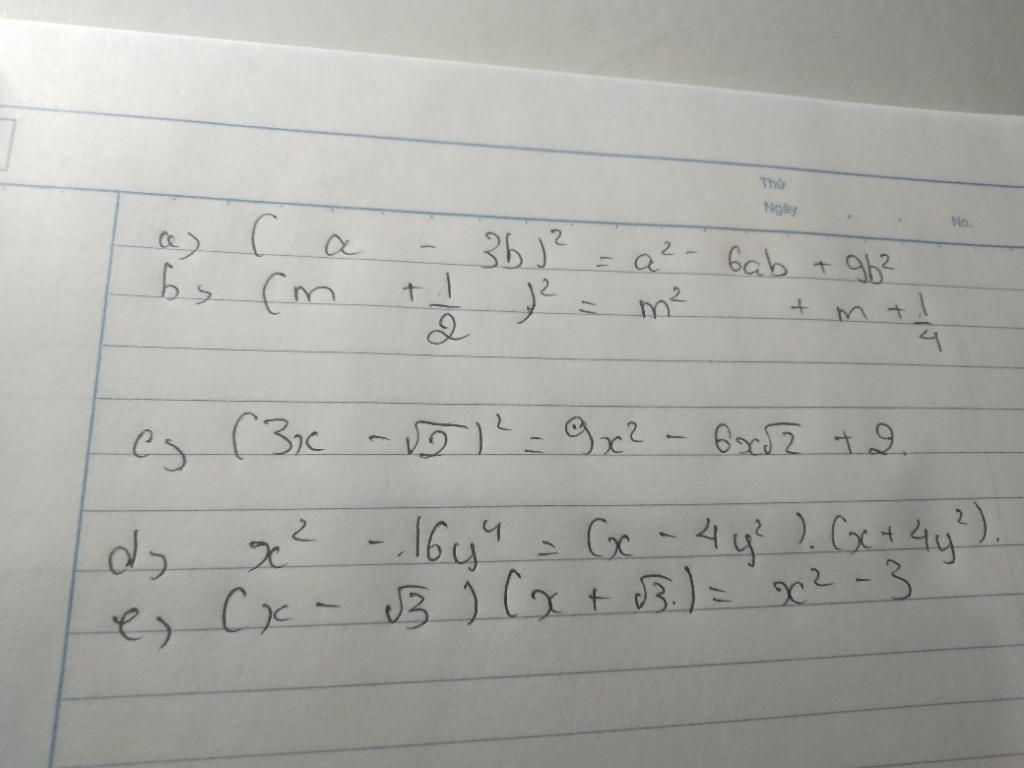 Thứ
Ngày . . No.
a) ( a - 3b )² = a² - 6ab + 9b²
b) (m + 1/2 )² = m² + m + 1/4
c) (3x - √2)² = 9x² - 6x√2 + 2.
d) x² - .16y⁴ = (x - 4y² ).(x + 4y²).
e) (x - √3 ) (x + √3.) = x² - 3